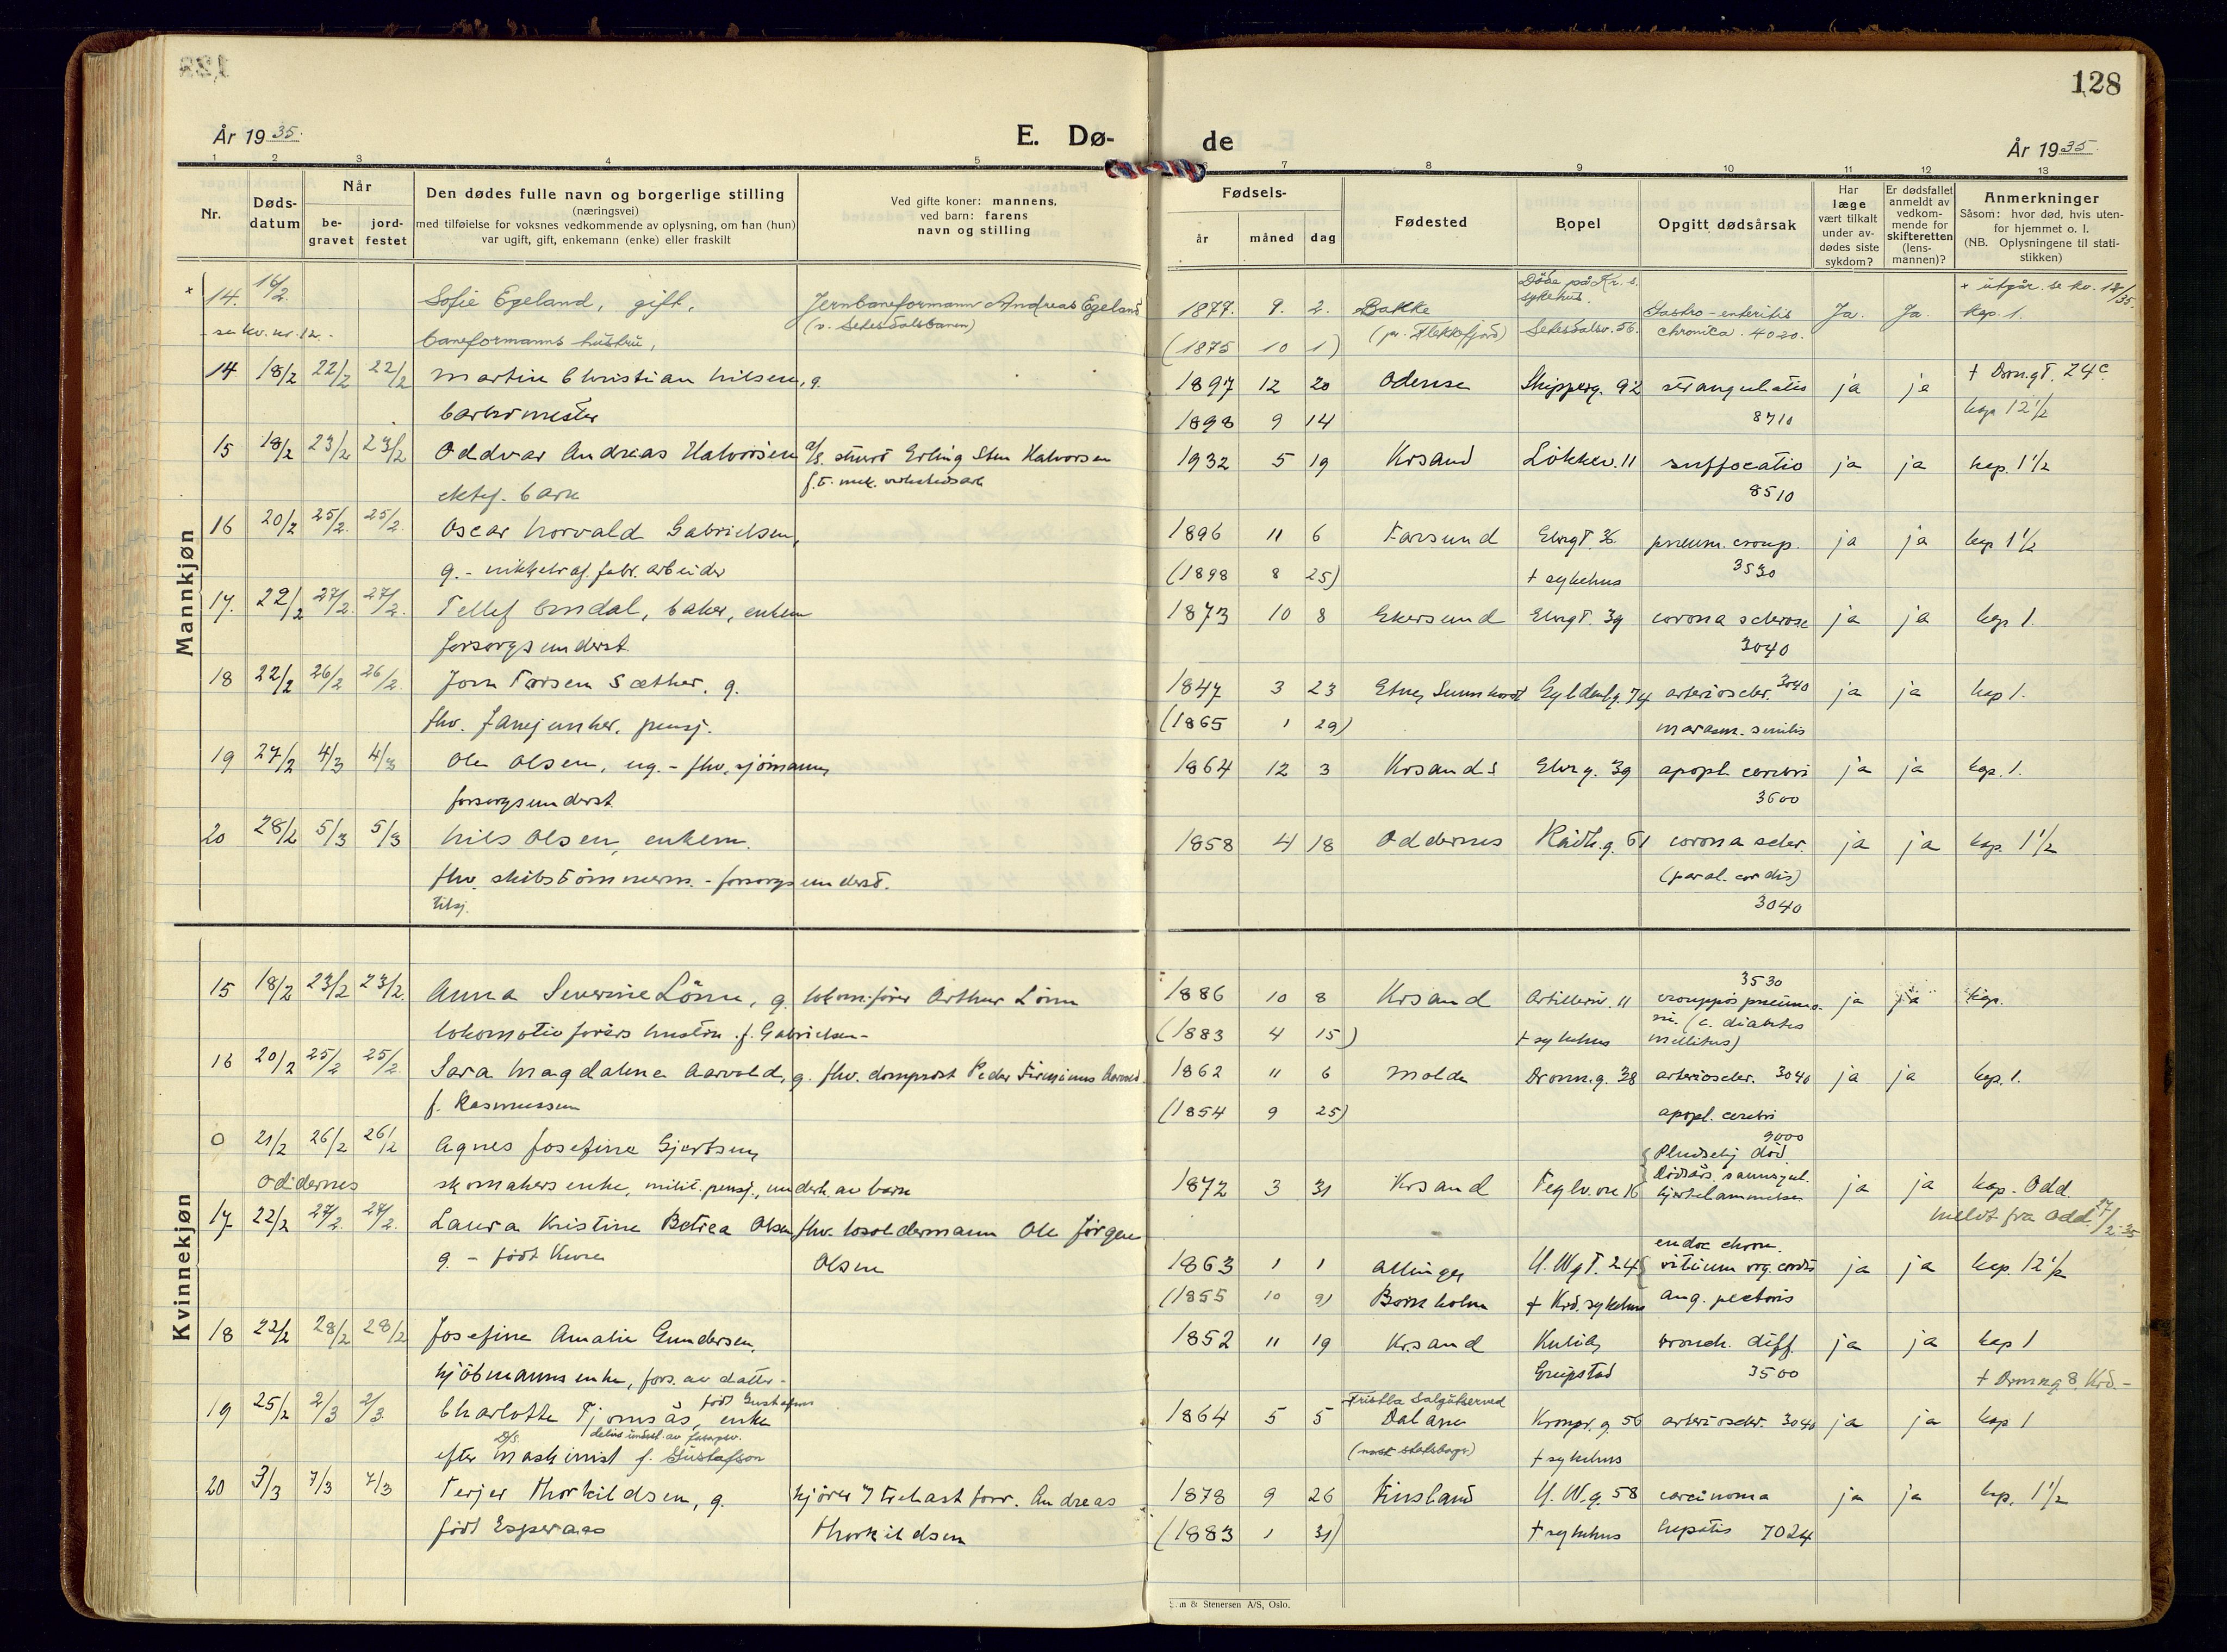 128
År 1935.
E. Dø-
de
År 1935.
1 2 3 4 5 7 8 9 10 11 12 13
Nr.
Døds-
datum
Når
be-
gravet
jord-
festet
Den dødes fulle navn og borgerlige stilling
(næringsvei)
med tilføielse for voksnes vedkommende av oplysning, om han (hun)
var ugift, gift, enkemann (enke) eller fraskilt
Ved gifte koner: mannens,
ved barn: farens
navn og stilling
Fødsels-
år måned dag
Fødested
Bopel
Opgitt dødsårsak
Har
læge
vært tilkalt
under av-
dødes siste
sykdom?
Er dødsfallet
anmeldt av
vedkom-
mende for
skifteretten
(lens-
mannen)?
Anmerkninger
Såsom: hvor død, hvis uten-
for hjemmet o. l.
(NB. Oplysningene til stati-
stikken)
Mannkjøn
14. 16/2. Sofie Egeland, gift. Jernbaneformann Andreas Egeland 1877. 9. 2. Bakke Døde på Kr. s. sykehus. Gastro-enteritis Ja. Ja. + utgår. se kv. 12/35. kap. 1.
- se kv. nr. 12. - baneformanns hustru, (v. Setesdalsbanen) (1875 10 1) (pr. Flekkefjord) Setesdalsv. 56. chronica. 4020.
14 18/2 22/2 22/2 Martin Christian Nilsen, g. 1897 12 20 Odense Skipperg. 92 strangulatio ja ja + Dron.gt. 24c
barbermester 1898 9 14 8710 kap 12 1/2
15 18/2 23/2 23/2 Oddvar Andreas Halvorsen Erling Sten Halvorsen 1932 5 19 Krsand Løkkev. 11 suffocatio ja ja kap. 1 1/2
ektef. barn f.t. mek. verkstedsarb 8510
16 20/2 25/2. 25/2. Oscar Norvald Gabrielsen, 1896 11 6 Farsund Elvegt. 36 pneum. croup. ja ja kap 1 1/2
g. - nikkelraf. fabr. arbeider (1898 8 25) + sykehus 3530
17. 22/2 27/2. 27/2. Tellef Omdal, baker, enkem 1873 10 8 Ekersund Elvegt. 39 corona sclerose ja ja kap 1.
forsorgsunderst. 3040
18 22/2 26/2 26/2. Jorn Torsen Sæther, g. 1847 3 23 Etne, Sunnhordl Gyldenl.g. 74 arterioscler. 3040 ja ja kap 1.
fhv. fanejunker, pensj. (1865 1 29) marasm. senilis
19 27/2 4/3 4/3 Ole Olsen, ug. - fhv. sjømann, 1864 12 3 Krsand S Elveg. 39 apopl. cerebri ja ja kap. 1.
forsorgsunderst 3600
20 28/2 5/3 5/3 Nils Olsen, enkem. 1858 4 18 Oddernes Rådh.g. 61 corona scler. ja ja kap. 1 1/2
fhv. skibstømmerm. - forsorgsunderst. (paral. cordis)
3040
Kvinnekjøn
15 18/2 23/2 23/2. Anna Severine Lönn, g. lokom.fører Arthur Lönn 1886 10 8 Krsand Artilleriv. 11 3530 crouppøs pneumo- ja ja kap.
lokomotivførers hustru. f. Gabrielsen - (1883 4 15) + sykehus ni. (c. diabetes mellitus)
16 20/2 25/2 25/2. Sara Magdalena Aarvold, g. fhv. domprost Peder Firminus Aarvold 1862 11 6 Molde Dronn.g. 38 arterioscler. 3040 ja ja kap. 1.
f. Rasmussen (1854 9 25) apopl. cerebri
0 21/2 26/2 26/2 Agnes Josefine Gjertsen, 9000 Pludselig død
Oddernes skomakers enke, milit. pensj., underh. av barn 1872 3 31 Krsand Teglv.nr 16 Dødsårs. sannsynl. hjertelammelse ja ja kap. Odd.
17. 22/2 27/2. 27/2. Laura Kristine Betrea Olsen fhv. losoldermann Ole Jörgen meldt fra Odd.
g. - født Olsen 1863 1 1 Allinge, V. W.gt. 24 endoc. chron. vitium org. cordis ja ja kap. 12 1/2
(1855 10 9) Bornholm + Krd. sykehus ang. pectoris
18 22/2 28/2 28/2 Josefine Amalie Gundersen, 1852 11 19 Kr.sand Kuliås bronch. diff. ja ja kap 1
kjøbmanns enke, fors. av datter - Grupstad 3500 + Dronng 8. Krd. -
19 25/2 2/3 2/3 Charlotte Tjomsås, enke født Gustafson 1864 5 5 Dalane Kronpr.g. 56 arterioscler. 3040 ja ja kap 1
efter D/S maskinist f. Gustafson + sykehus
20 3/3 7/3 7/3 Terjer Thorkildsen, g. kjører & trelastforr. Andreas 1878 9 26 Finsland V. W.g. 58 carcinoma ja ja kap. 1 1/2
født Esperaas Thorkildsen (1883 1 31) + sykehus hepatis 7024
& Stenersen A/S, Oslo.